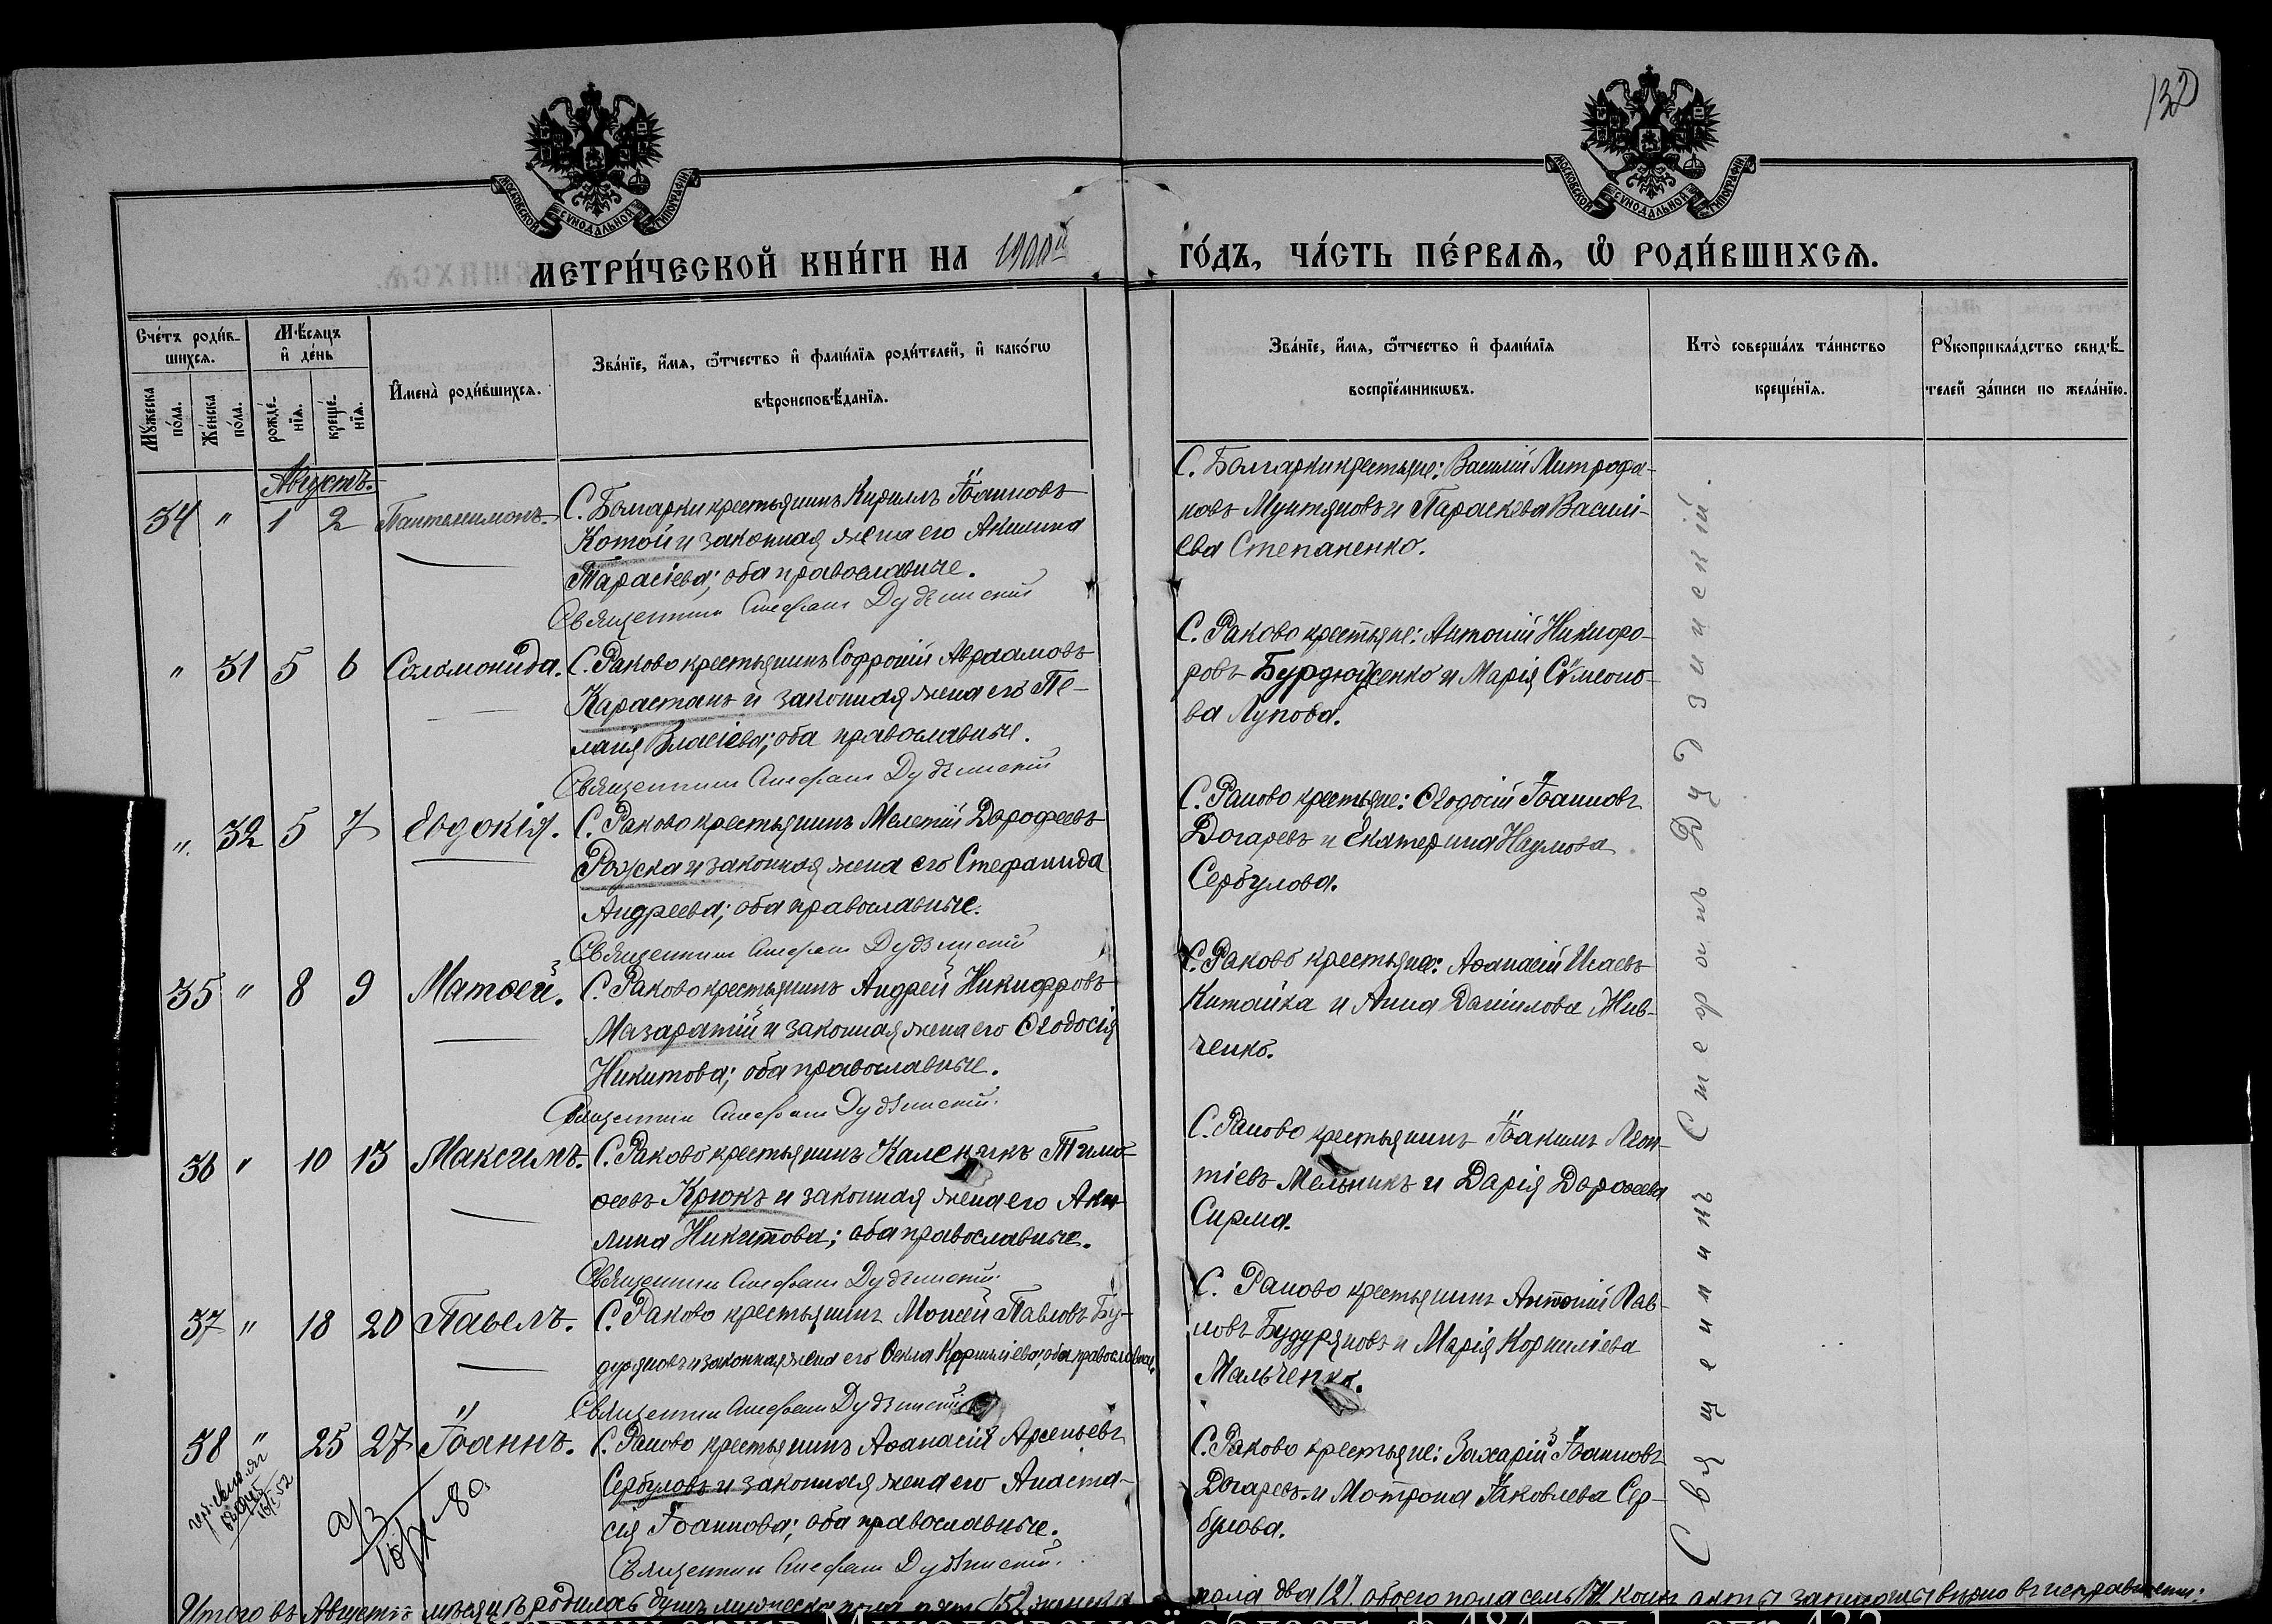 132
МОСКОВСКОЙ СѴНОДАЛЬНОЙ ТИПОГРАФІИ
МОСКОВСКОЙ СѴНОДАЛЬНОЙ ТИПОГРАФІИ
МЕТРИ́ЧЕСКОЙ КНИ́ГИ НА 1900й
ГО́ДЪ, ЧА́СТЬ ПЕ́РВАѦ, Ѽ РОДИ́ВШИХСѦ.
Сче́тъ роди́в-
шихся.
Му́жеска по́ла.
Же́нска по́ла.
Мѣ́сяцъ
и҆ де́нь
рожде́-нїя.
креще́-нїя.
И҆мена̀ роди́вшихся.
Зва́нїе, и҆́мя, ѻ҆́тчество и҆ фами́лїя роди́телей, и҆ како́гѡ
вѣроисповѣ́данїя.
Зва́нїе, и҆́мя, ѻ҆́тчество и҆ фами́лїя
воспрїе́мникѡвъ.
Кто̀ соверша́лъ та́инство
креще́нїя.
Рꙋкоприкла́дство свидѣ́-
телей за́писи по жела́нїю.
Августъ.
34 " 1 2 Пантелимонъ.
С. Болгарки крестьянинъ Кириллъ Іоанновъ
Котой и законная жена его Акилина
Тарасіева; оба православные.
Священникъ Стефанъ Дудзинскій
С. Болгарки крестьяне: Василій Митрофа-
новъ Мунтяновъ и Параскева Васильі-
ева Степаненко.
" 31 5 6 Соломонида.
С. Раково крестьянинъ Софроній Авраамовъ
Карастанъ и законная жена его Пе-
лагія Власіева; оба православные.
Священникъ Стефанъ Дудзинскій
С. Раково крестьяне: Антоній Никифо-
ровъ Бурдюженко и Марія Сѵмеоно-
ва Лупова.
" 32 5 7 Евдокія.
С. Раково крестьянинъ Мелетій Дорофеевъ
Рожска и законная жена его Стефанида
Андреева; оба православные.
Священникъ Стефанъ Дудзинскій
С. Раково крестьяне: Ѳеодосій Іоанновъ
Догаревъ и Екатерина Наумова
Сербулова.
35 " 8 9 Матѳей.
С. Раково крестьянинъ Андрей Никифровъ
Мазаратій и законная жена его Ѳеодосія
Никитова; оба православные.
Священникъ Стефанъ Дудзинскій.
С. Раково крестьяне: Аѳанасій Исаевъ
Китайка и Анна Даніилова Жив-
ченко.
36 " 10 13 Максимъ.
С. Раково крестьянинъ Каленикъ Тимо-
ѳеевъ Крюкъ и законная жена его Аки-
лина Никитова; оба православные.
Священникъ Стефанъ Дудзинскій.
С. Раково крестьянинъ Іоакимъ Леон-
тіевъ Мельникъ и Дарія Дороѳеева
Сирма.
37 " 18 20 Павелъ.
С. Раково крестьянинъ Моисей Павловъ Бу-
дуряновъ и законная жена его Ѳекла Корниліева; оба православные.
Священникъ Стефанъ Дудзинскій
С. Раково крестьянинъ Антоній Пав-
ловъ Будуряновъ и Марія Корниліева
Мальченко.
38 " 25 27 Іоаннъ.
С. Раково крестьянинъ Аѳанасій Арсеньевъ
Сербуловъ и законная жена его Анаста-
сія Іоаннова; оба православные.
Священникъ Стефанъ Дудзинскій.
С. Раково крестьяне: Захарій Іоанновъ
Догаревъ и Мотрона Іаковлева Сер-
булова.
Священникъ Стефанъ Дудзинскій.
Итого въ Августѣ мѣсяцѣ родилось душъ мужеска пола пять /5/, женска
пола два /2/ обоего пола семь /7/ коихъ акты записаны вѣрно